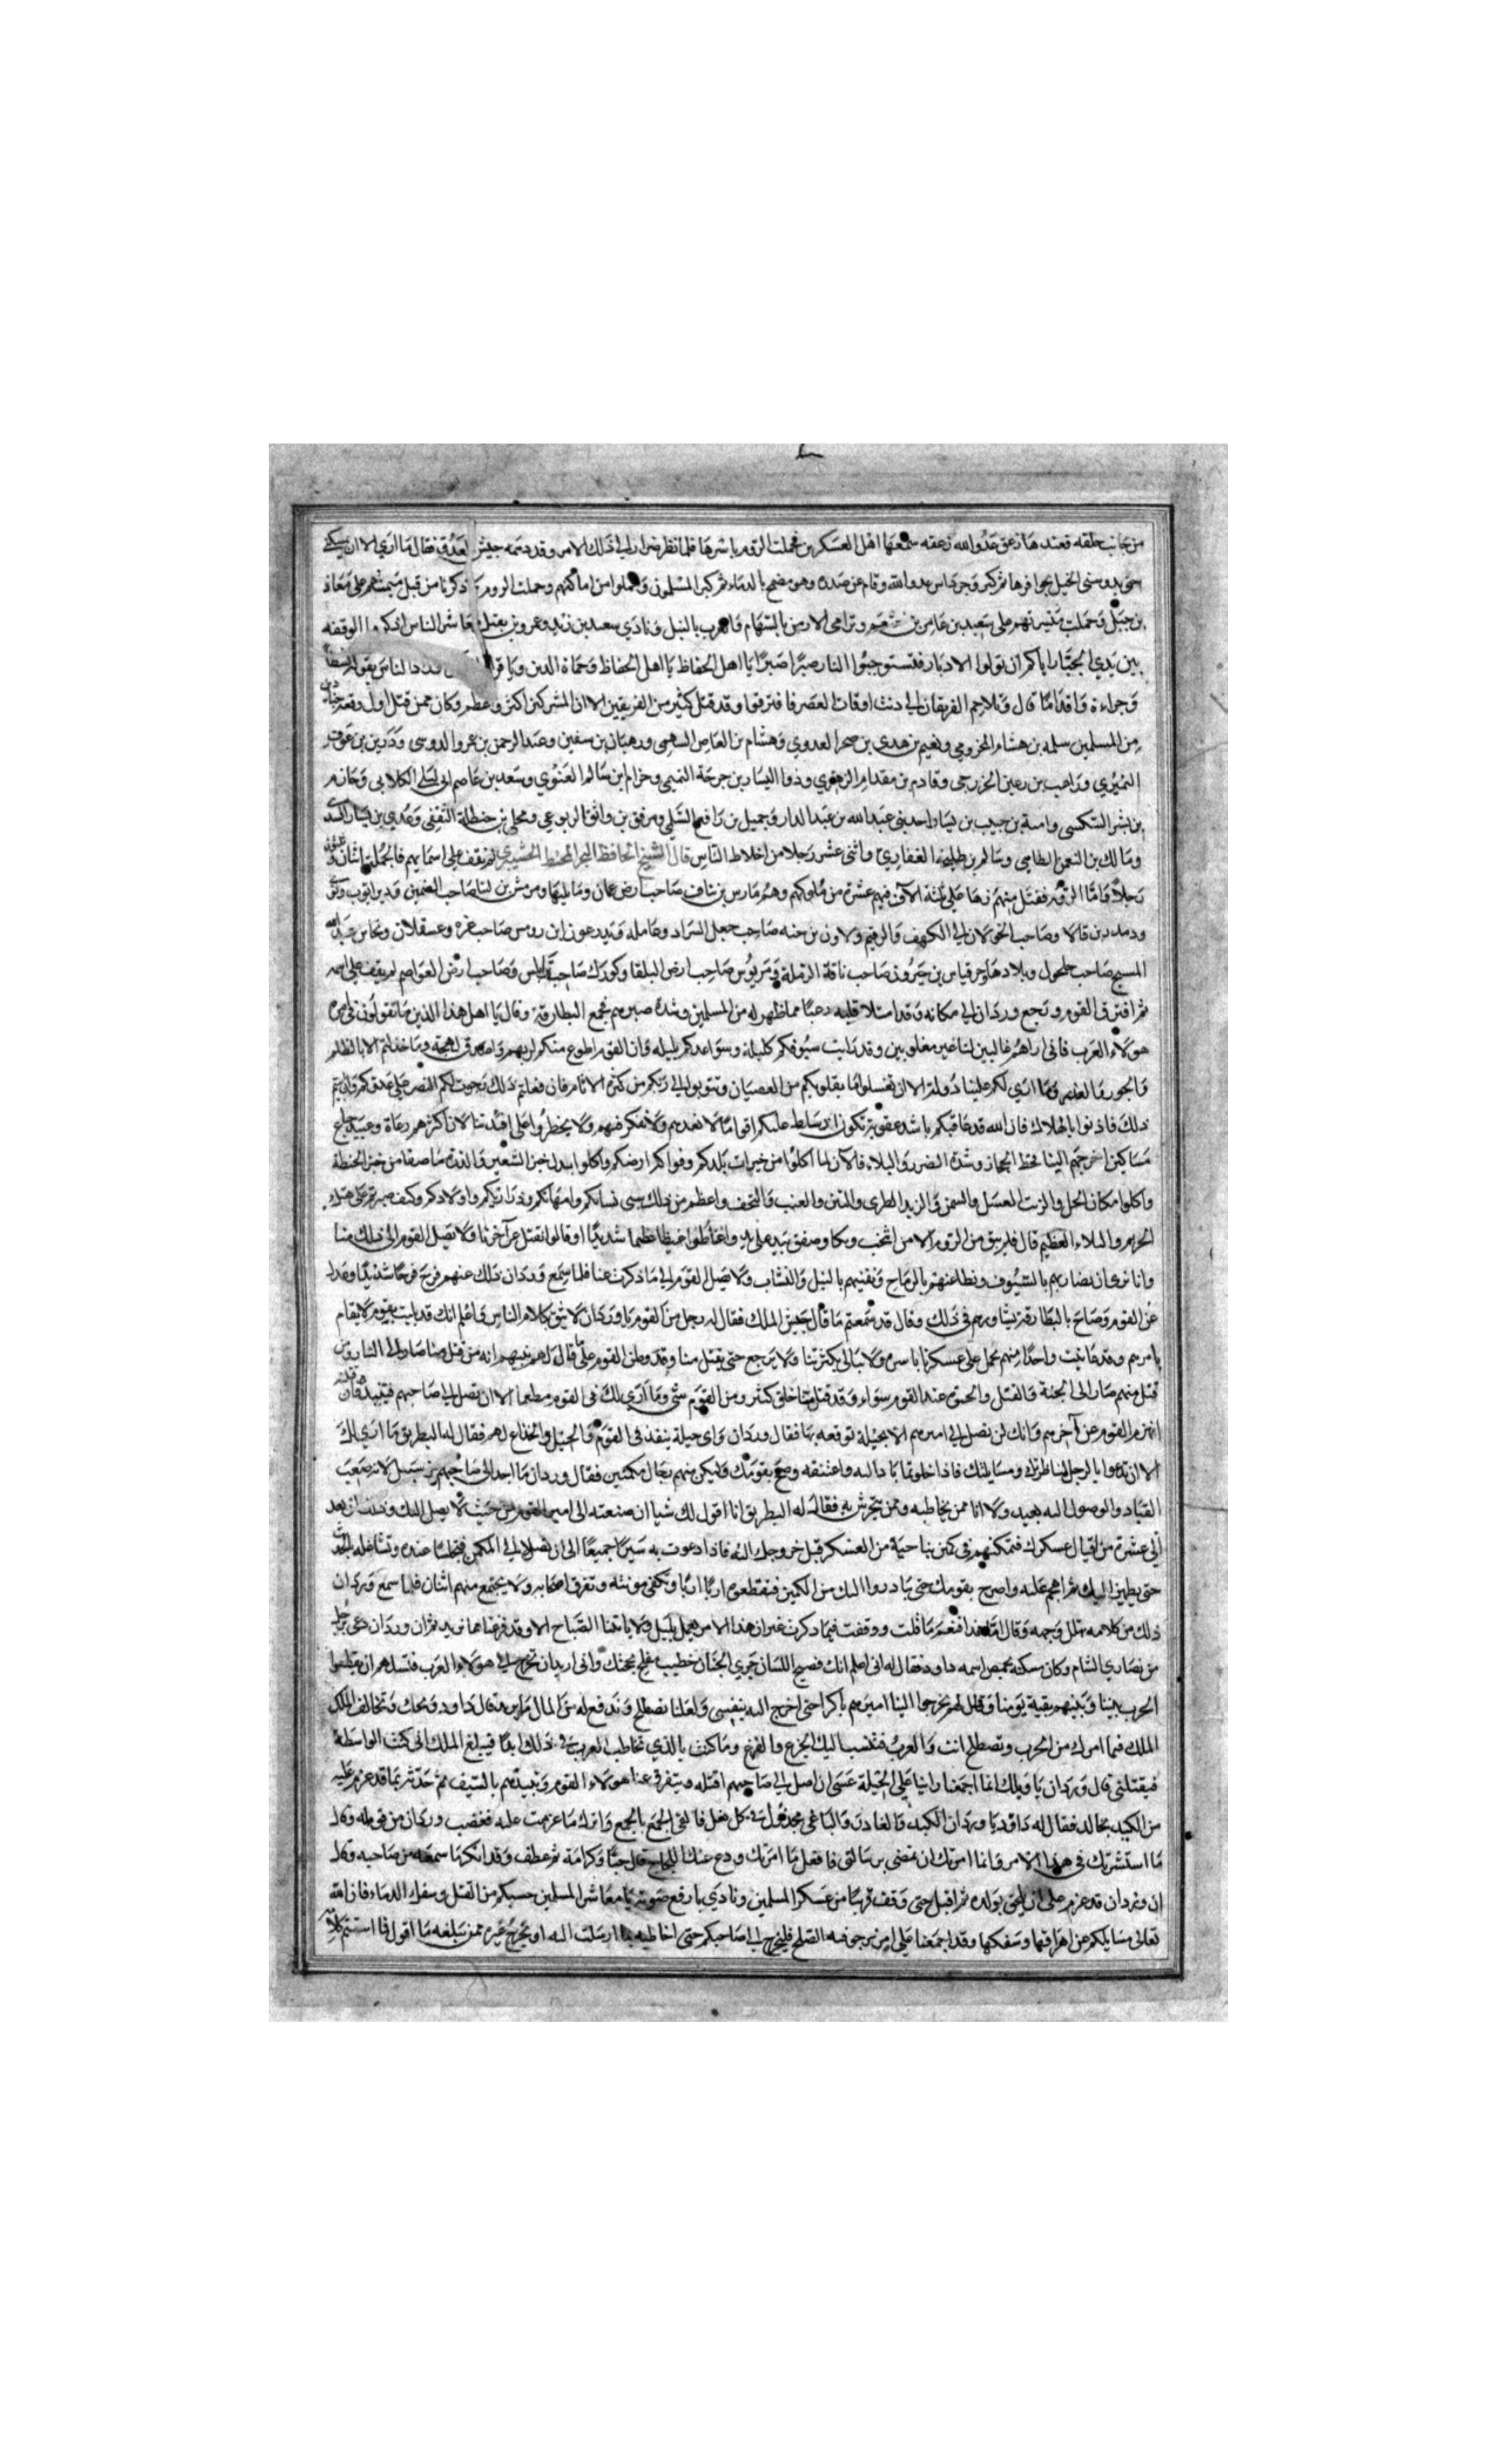 من جانب حلقه فعندها زعق عدو الله زعقه سمعها اهل العسكرين فحملت الروم باسرها فلما نظر ضرار الى ذلك الامر وقد دهمه جيش العدو فقال ما ارى الا ان
الخيل بحوافرها ثم كبر وقام عن صدره وهو مضمخ بالدماء ثم كبر المسلمون وحملوا من اماكنهم وحملت الروم ذكرنا من قبل ميمنتهم على معاذ
بن جبل وحملت ميسرتهم على سعيد بن عامر وترامى الارمن بالسهام والعرب بالنبل ونادى سعيد بن زيد وعمرو بن معاشر الناس اذكروا الوقفه
بين يدي الجبار اياكم ان تولوا الادبار فتستوجبوا النار صبرا صبرا يا اهل الحفاظ يا اهل الحفاظ وحماة الدين ويا قراء الناس بقوله
وجراءة واقداما قال وتلاحم الفريقان الى دنت اوقات العصر فافترقوا وقد قتل كثير من الفريقين الا ان المشركين اكثر واعظم وكان ممن قتل اول وقعة
من المسلمين سلمه بن هشام المخزومي ونعيم بن عدي بن صخر العدوي وهشام بن العاص السهمي وهبان بن سفين وعبد الرحمن بن عمرو الدوسي بن عوف
النميري وراهب بن رعين الخزرجي وقادم بن مقدام الزهري وذو اليسار بن جرجة التميمي وخزام ابن سالم الغنوي وسعد بن عاصم ابي ليلى الكلابي وحازم
بن بشر السكسي وامية بن حبيب بن يسار احد بني عبد الله بن عبد الدار وجميل بن رافع ومرفق بن واثق اليربوعي ومحلي بن حنظلة الثقفي وعدي بن يسار
ومالك بن النعمن الطامي وسالم بن طلحه الغفاري واثني عشر رجلا من اخلاط الناس قال الشيخ الحافظ لم نقف على اسمايهم فالجملة اثنان
رجلا واما الروم فقتل منهم زها على ثلثة الاف فيهم عشرة من ملوكهم وهم مارس بن صاحب ارض عمان وما يليها
وصاحب الجولان الى الكهف والرقيم ولاون بن حنه صاحب جبل السراد وعامله ابن رومس صاحب غزه وعسقلان ونحاس بن عبد
المسيح صاحب حلحول وبلادها وجرقياس بن جيرون صاحب نافة الرملة ومريونس صاحب ارض البلقا وكورك صاحب نابلس وصاحب ارض العواصم لم يقف على اسمه
ثم افترق القوم ورجع وردان الى مكانه وقد امتلا قلبه رعبا مما ظهر له من المسلمين وشدة صبرهم فجمع البطارقة وقال يا اهل هذا الدين ما تقولون في امر
هولاء العرب فاني اراهم غالبين لنا غير مغلوبين وقد رايت سيوفكم كليلة وسواعدكم بليله وان القوم اطوع منكم لربهم وما خذلتم الا بالظلم
والجور والغدر وما ارى لكم علينا دولة الا ان تغسلوا ما بقلوبكم من العصيان وتتوبوا الى ربكم من كثرة الاثام فان فعلتم ذلك رجوت لكم النصر على عدوكم وان ابيتم
ذلك فاذنوا بالهلاك فان الله قد عاقبكم باشد عقوبة تكون ان سلط عليكم اقواما لا نعدهم ولا نفكر فيهم ولا يخطروا على افئدتنا لان اكثرهم رعاة وعبيد جياع
مساكين اخرجهم الينا قحط الحجاز وشدة الضرر والبلاء فالان لما اكلوا من خيرات بلدكم وفواكه ارضكم واكلوا بدل خبز الشعير والذرة خبز الحنطة
واكلوا مكان الخل والزيت العسل والسمن والزبد الطري والتين والعنب والتحف واعظم من ذلك سبي نسايكم وامهاتكم وذراريكم واولادكم وكيف صبرتم على هتك
الحريم والبلاء العظيم قال فلم يبق من الروم الا من انتحب وبكا وصفق بيد على يد واغتاظوا غيظا عظيما شديدا وقالوا نقتل عن آخرنا ولا تصل القوم الى ذلك منا
وانا نرى ان نضاربهم بالسيوف ونطاعنهم بالرماح ونفنيهم بالنبل والنشاب ولا تصل القوم الى ما ذكرت عنا فلما سمع وردان ذلك عنهم فرح فرحا شديدا
عن القوم وصاح بالبطارقة يشاورهم في ذلك وقال قد سمعتم ما قال جيش الملك فقال له رجل من القوم يا وردان لا تثق بكلام الناس واعلم انك قد بليت بقوم لا يقام
بامرهم وقد عاينت واحدا منهم يحمل على عسكرنا باسره ولا يبالي بكثرتنا ولا يرجع حتى يقتل منا وقد وطن القوم على ما قال لهم نبيهم انه من قتل منا صار الى النار ومن
قتل منهم صار الى الجنة والقتل والحيوة عند القوم سواء وقد قتل منا خلق كثير ومن القوم شي وما ارى لك في القوم مطمعا الا ان تصل الى صاحبهم فتبيده فان قتلته
انهزم القوم عن آخرهم وانك لن تصل الى اميرهم الا بحيلة توقعه بها فقال وردان واي حيلة ينفذ في القوم والحيل والخداع لهم فقال له البطريق ما ارى لك
الا ان تدعوا بالرجل لمناظرتك ومسايلتك فاذا خلوتما بادر اليه واعتنقه وصح بقومك وليكن منهم رجال مكمنين فقال وردان ما اجد الى صاحبهم من سبيل لانه صعب
القياد والوصول اليه بعيد ولا انا ممن يخاطبه وممن يتحرش به فقال له البطريق انا اقول لك شيا ان صنعته الى امير القوم من حيث لا يصل اليك وذلك ان تعد
الى عشرة من اقيال عسكرك فتمكنهم في كمين بناحية من العسكر قبل خروجك اليه فاذا دعوت به سيرا جميعا الى ان تصلا الى المكمن فجلسا عنده وتشاغله بالحديث
حتى يطمين اليك ثم اهجم عليه واصرخ بقومك حتى يبادروا اليك من الكمين فتقطعوه اربا اربا وتكفى مونته وتفرق اصحابه ولا يجتمع منهم اثنان فلما سمع وردان
ذلك من كلامه تهلل وجهه وقال لقد افلحت ما قلت ووقفت فيما ذكرت غير ان هذا الامر يعمل بليل ولا ياتينا الصباح الا وقد فرغنا مما نريد ثم ان وردان دعى برجل
من نصارى الشام وكان سكنه بحمص اسمه داود فقال له اني اعلم انك فصيح اللسان جري الجنان خطيب بحجتك واني اريد ان تخرج الى هولاء العرب فتسلهم ان يقطعوا
الحرب بيننا وبينهم بقية يومنا وقل لهم يخرجوا الينا اميرهم باكرا حتى اخرج اليه بنفسي ولعلنا نصطلح وندفع له من المال مايريد فقال داود ويحك وتخالف الملك
الملك فيما امرك من الحرب وتصطلح انت والعرب فتنسب اليك الجزع والفزع وما كنت بالذي تخاطب العرب في ذلك ابدا فيبلغ الملك اني كنت الواسطة
فيقتلني قال وردان يا ويلك انما اجمعنا راينا على الحيلة عسى ان اصل الى صاحبهم اقتله ويتفرق عنا هولاء القوم ونبيدهم بالسيف ثم حدثه بما قد عزم عليه
من الكيد بخالد فقال له داود يا وردان الكيد والغادر والباغي مخذول في كل فعل فالقى الجمع بالجمع واترك ما عزمت عليه فغضب وردان من قوله وقال
ما استشرتك في هذا الامر وانما امرتك ان تمضي برسالتي فافعل ما امرتك ودع عنك اللجاج قال حبا وكرامة ثم عطف وقد انكر ما سمعه من صاحبه وقال
ان وردان قد عزم على ان يلحق بولده ثم اقبل حتى وقف قريبا من عسكر المسلمين ونادى بارفع صوته يا معاشر المسلمين حسبكم من القتل وسفك الدماء فان الله
تعالى مسايلكم عن اهراقها وسفكها وقد اجمعنا على امر نرجو فيه الصلح فليخرج الى صاحبكم حتى اخاطبه بما ارسلت اليه او يخرج غيره ممن يبلغه ما اقول فما استتم كلامه